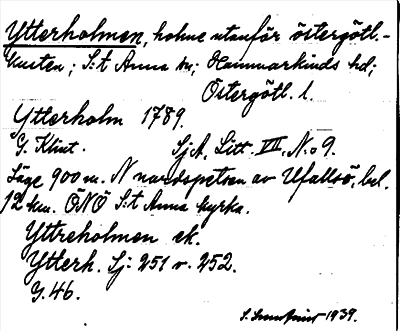 Ytterholmen, holme utanför östergötl.-
kusten; S:t Anna sn; Hammarkinds hd;
Östergötl. l.
Ytterholm 1789.
G. Klint. SjA, Litt. VII, No 9.
Läge 900 m. N nordspetsen av Ufallsö, bel.
12 km. ÖNÖ S:t Anna kyrka.
Yttreholmen ek.
Ytterh. Sj: 251 o. 252.
G. 46.
1939.